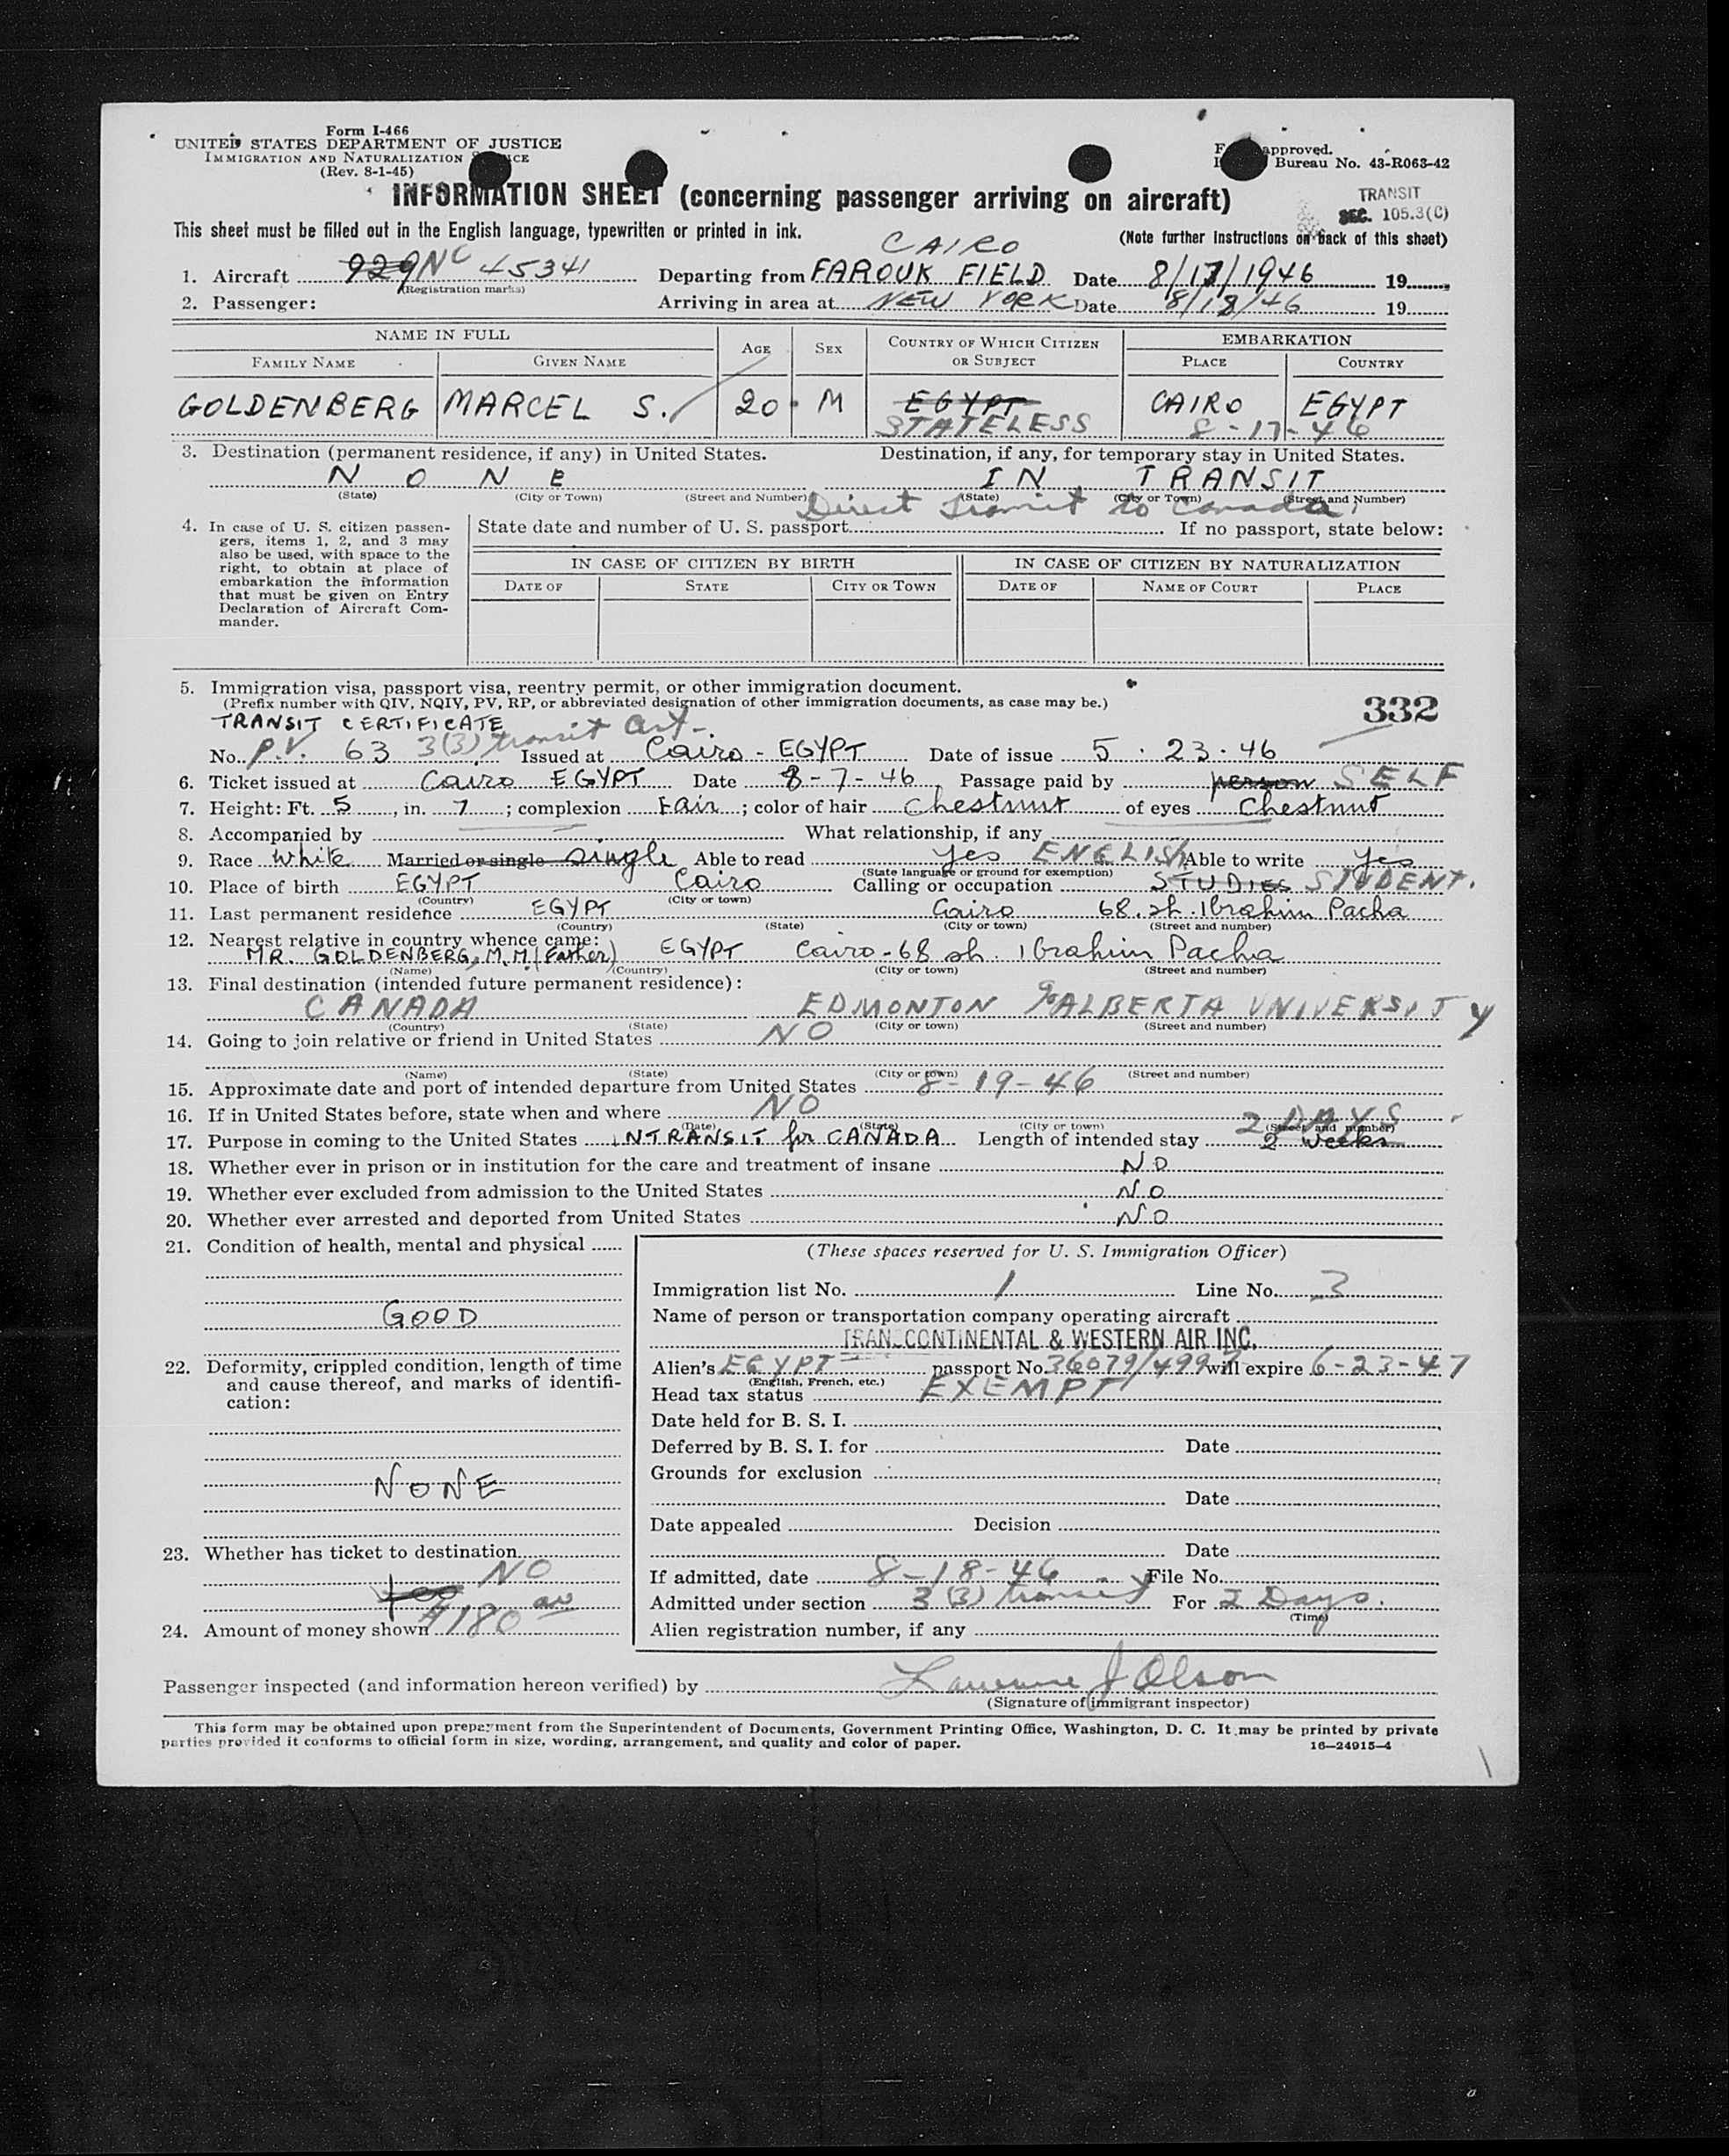 Form I-466
UNITED STATES DEPARTMENT OF JUSTICE
IMMIGRATION AND NATURALIZATION
(Rev. 8-1-45)
approved.
Bureau No. 43-R063-42
INFORMATION SHEET (concerning passenger arriving on aircraft)
TRANSIT
SEC. 105.3(C)
This sheet must be filled out in the English language, typewritten or printed in ink.
(Note further instructions on back of this sheet)
CAIRO
1. Aircraft 929 NC 45341 Departing from FAROUK FIELD Date 8/17/1946 19
(Registration marks)
2. Passenger: Arriving in area at NEW YORK Date 8/18/46 19
NAME IN FULL AGE SEX COUNTRY OF WHICH CITIZEN OR SUBJECT EMBARKATION
FAMILY NAME GIVEN NAME PLACE COUNTRY
GOLDENBERG MARCEL S. 20 M EGYPT CAIRO EGYPT
STATELESS 8-17-46
3. Destination (permanent residence, if any) in United States. Destination, if any, for temporary stay in United States.
NONE IN TRANSIT
(State) (City or Town) (Street and Number) (State) (City or Town) (Street and Number)
Direct Transit to Canada
4. In case of U. S. citizen passengers, items 1, 2, and 3 may also be used, with space to the right, to obtain at place of embarkation the information that must be given on Entry Declaration of Aircraft Commander.
State date and number of U. S. passport If no passport, state below:
IN CASE OF CITIZEN BY BIRTH IN CASE OF CITIZEN BY NATURALIZATION
DATE OF STATE CITY OR TOWN DATE OF NAME OF COURT PLACE
5. Immigration visa, passport visa, reentry permit, or other immigration document.
(Prefix number with QIV, NQIV, PV, RP, or abbreviated designation of other immigration documents, as case may be.)
332
TRANSIT CERTIFICATE
No. P.V. 63 3(3) transit cert- Issued at Cairo - EGYPT Date of issue 5 . 23 . 46
6. Ticket issued at Cairo EGYPT Date 8-7-46 Passage paid by person SELF
7. Height: Ft. 5, in. 7; complexion Fair; color of hair Chestnut of eyes Chestnut
8. Accompanied by What relationship, if any
9. Race White Married or single Single Able to read yes ENGLISH Able to write yes
(State language or ground for exemption)
10. Place of birth EGYPT Cairo Calling or occupation STUDIES STUDENT.
(Country) (City or town)
11. Last permanent residence EGYPT Cairo 68. sh. Ibrahim Pacha
(Country) (State) (City or town) (Street and number)
12. Nearest relative in country whence came:
MR. GOLDENBERG, M.M. (Father) EGYPT Cairo - 68 sh. Ibrahim Pacha
(Name) (Country) (City or town) (Street and number)
13. Final destination (intended future permanent residence):
CANADA EDMONTON % ALBERTA UNIVERSITY
(Country) (State) (City or town) (Street and number)
14. Going to join relative or friend in United States NO
(Name) (State) (City or town) (Street and number)
15. Approximate date and port of intended departure from United States 8-19-46
16. If in United States before, state when and where NO
(Date) (State) (City or town) (Street and number)
2 DAYS
17. Purpose in coming to the United States INTRANSIT for CANADA Length of intended stay 2 weeks
18. Whether ever in prison or in institution for the care and treatment of insane NO
19. Whether ever excluded from admission to the United States NO
20. Whether ever arrested and deported from United States NO
21. Condition of health, mental and physical
GOOD
22. Deformity, crippled condition, length of time and cause thereof, and marks of identification:
NONE
23. Whether has ticket to destination
NO
24. Amount of money shown $180 00
(These spaces reserved for U. S. Immigration Officer)
Immigration list No. 1 Line No. 3
Name of person or transportation company operating aircraft
TRANSCONTINENTAL & WESTERN AIR INC.
Alien's EGYPT passport No. 36079/4997 will expire 6-23-47
(English, French, etc.)
Head tax status EXEMPT
Date held for B. S. I.
Deferred by B. S. I. for Date
Grounds for exclusion
Date
Date appealed Decision
Date
If admitted, date 8-18-46 File No.
Admitted under section 3(3) transit For 2 Days.
(Time)
Alien registration number, if any
Passenger inspected (and information hereon verified) by Lawrence J Olson
(Signature of immigrant inspector)
This form may be obtained upon prepayment from the Superintendent of Documents, Government Printing Office, Washington, D. C. It may be printed by private
parties provided it conforms to official form in size, wording, arrangement, and quality and color of paper.
16—24915-4